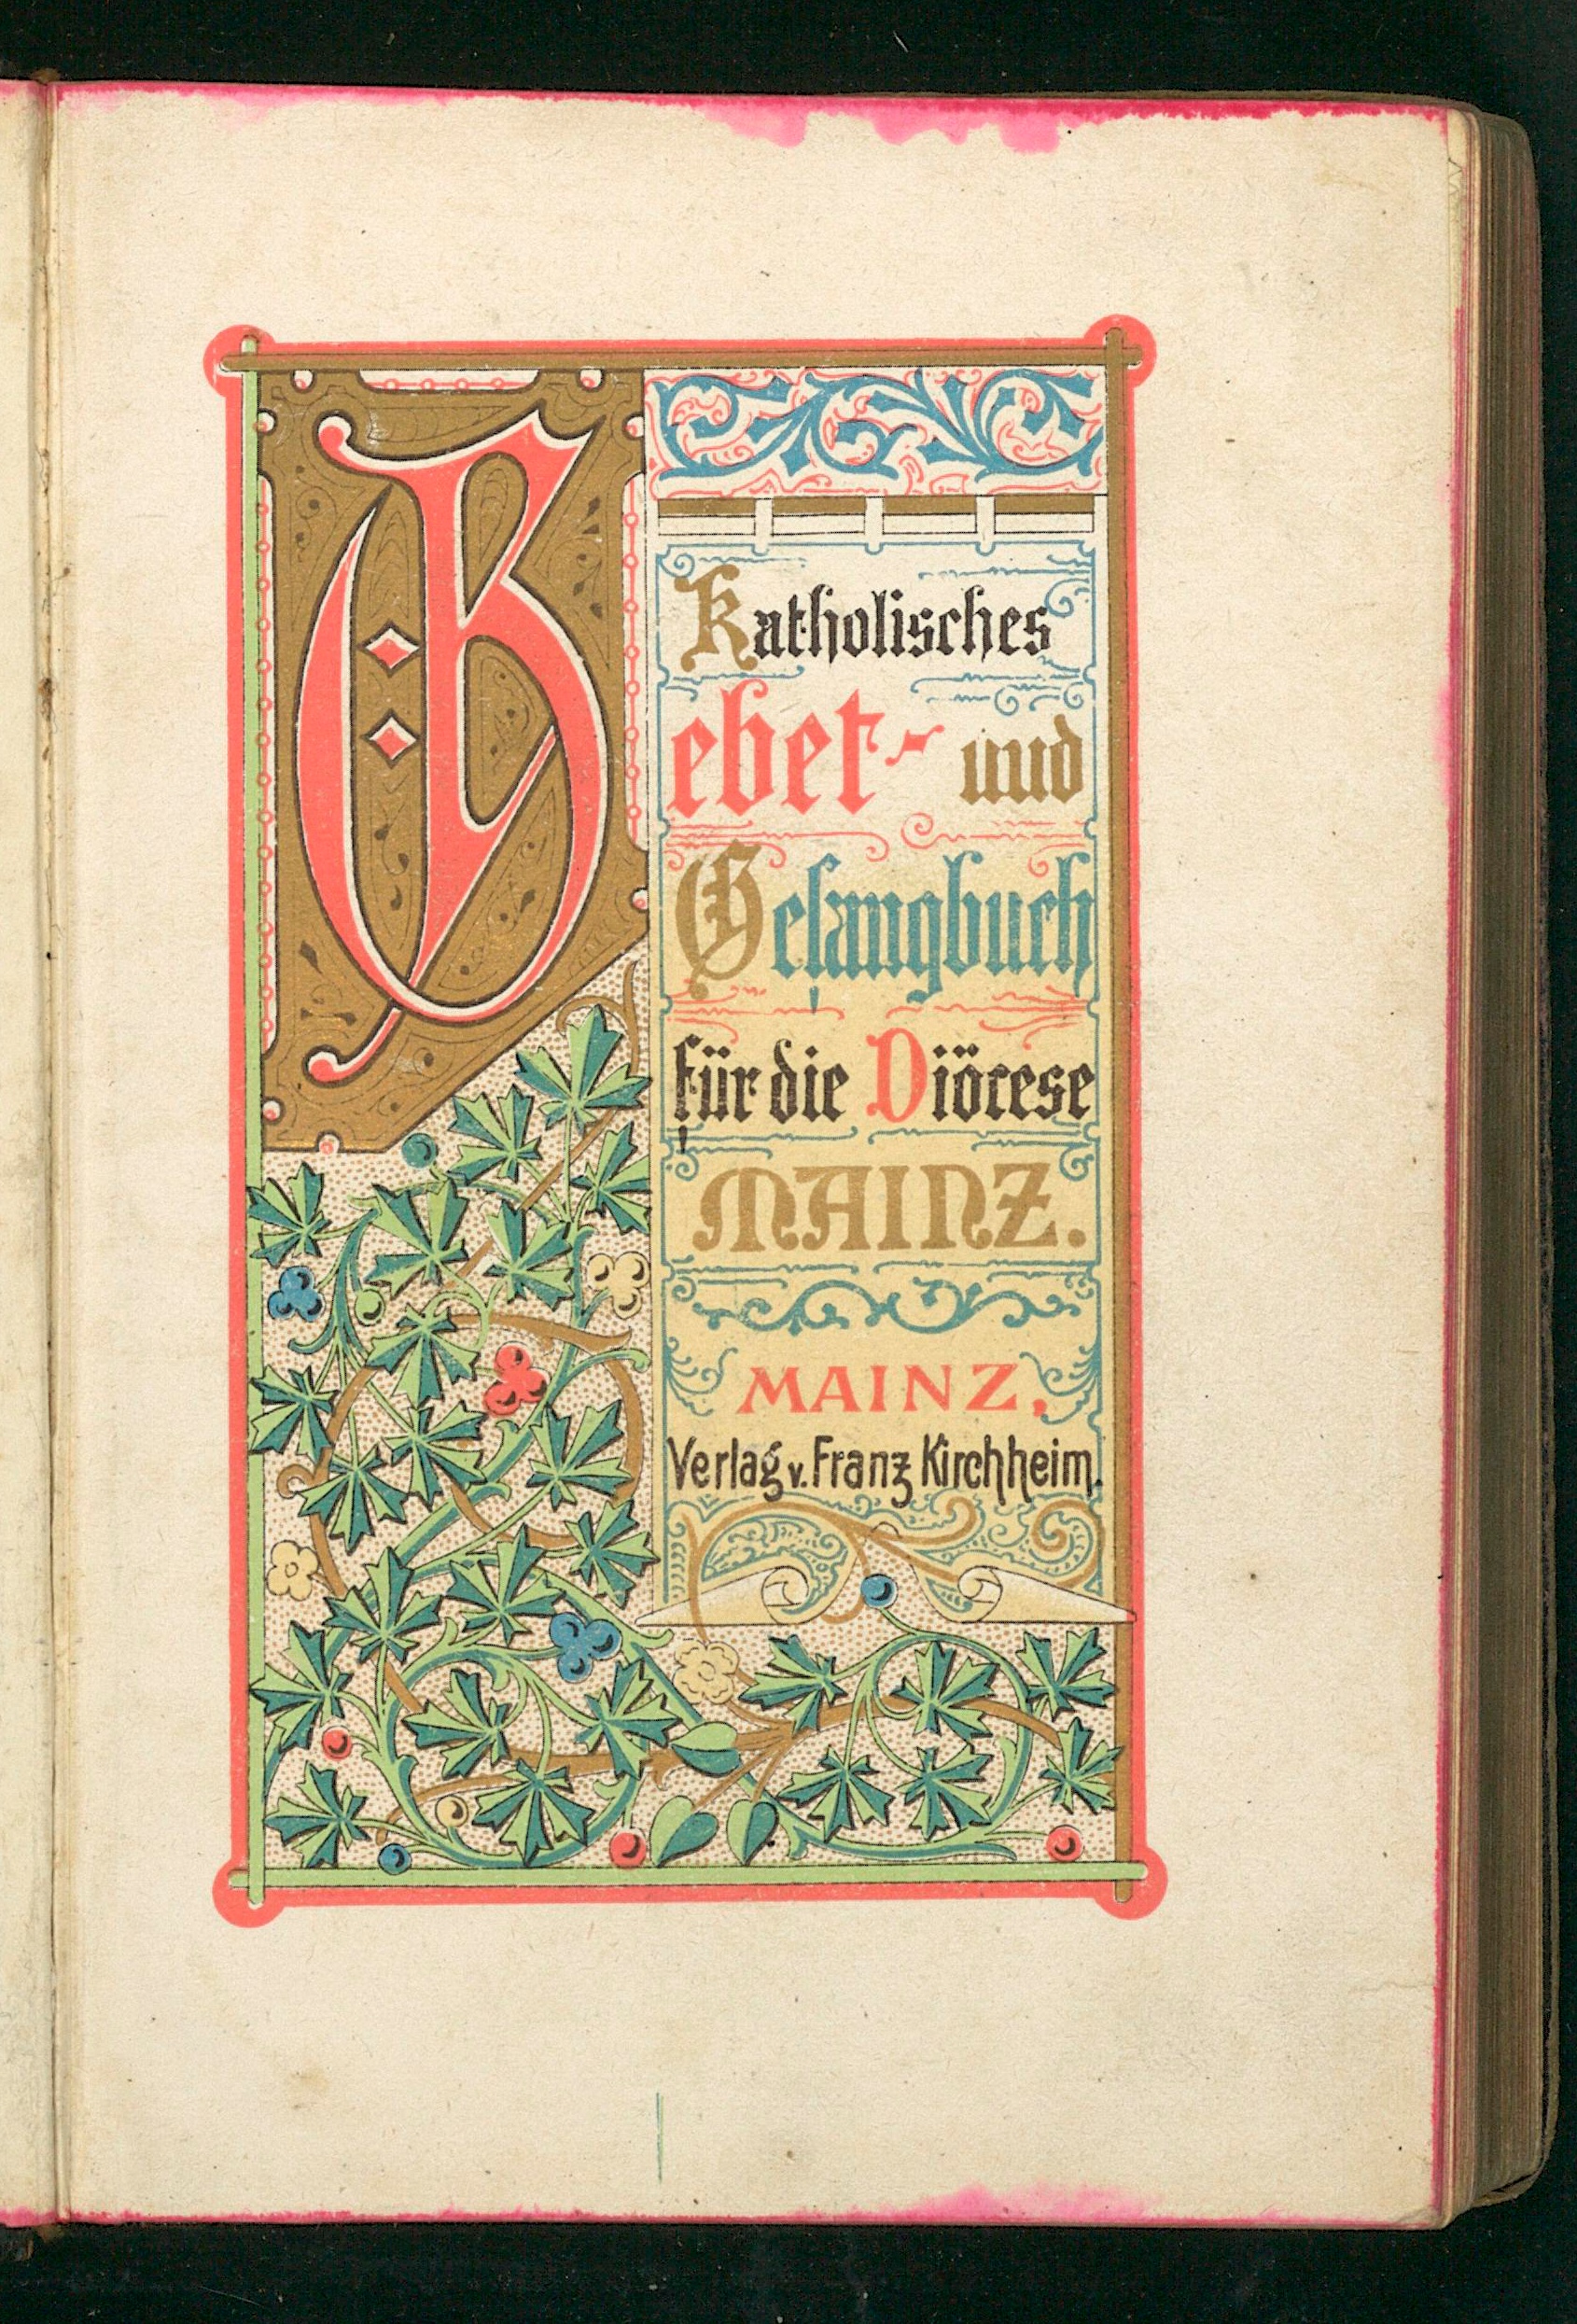 Katholisches
Gebet- und
Gesangbuch
für die Diöcese
MAINZ.
MAINZ,
Verlag v. Franz Kirchheim.